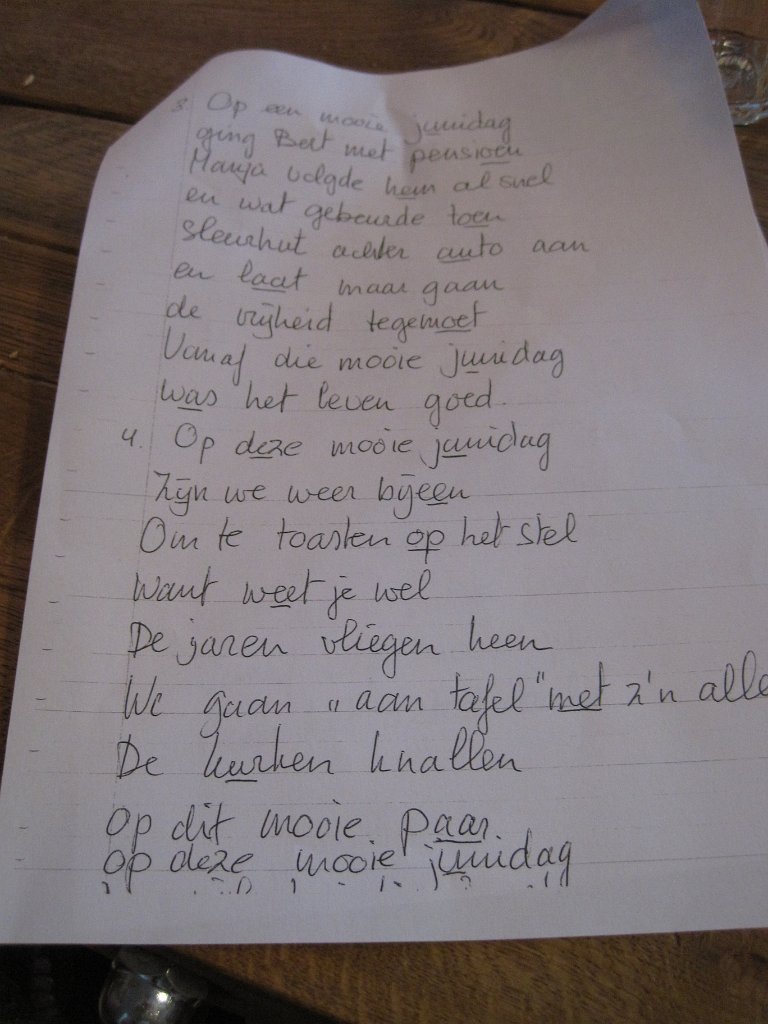 3. Op een mooie junidag
ging Bert met pensioen
Manja volgde hem al snel
en wat gebeurde toen
sleurhut achter auto aan
en laat maar gaan
de vrijheid tegemoet
Vanaf die mooie junidag
was het leven goed.
4. Op deze mooie junidag
Zijn we weer bijeen
Om te toasten op het stel
Want weet je wel
De jaren vliegen heen
We gaan „aan tafel" met z'n alle
De kurken knallen
Op dit mooie paar
op deze mooie junidag